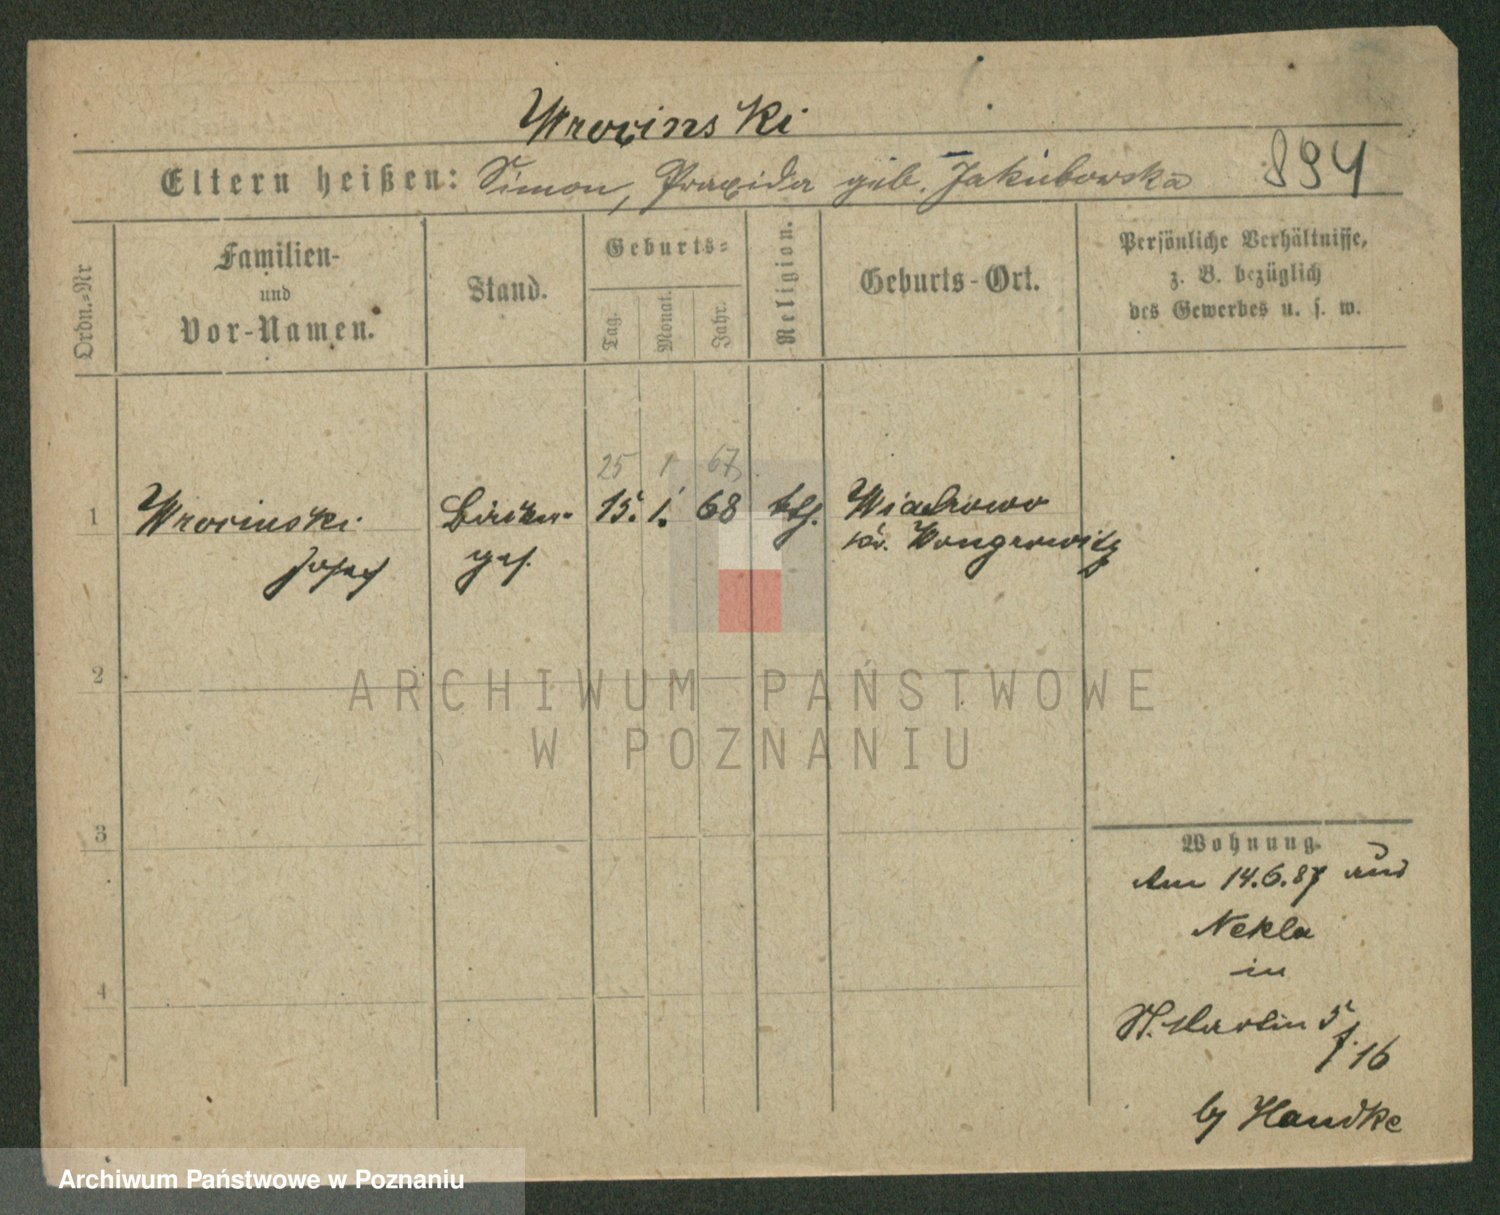 Wrocinski
Eltern heißen: Simon, Praxida geb. Jakubowska 894
Ordn.=Nr
Familien-
und
Vor-Namen.
Stand.
Geburts=
Tag.
Monat.
Jahr.
Religion.
Geburts-Ort.
Persönliche Verhältnisse,
z. B. bezüglich
des Gewerbes u. s. w.
25 1 67
1 Wrocinski 15. 1. 68 kth.
Josef ges.
Kr. Wongrowitz
2
3
4
Wohnung.
Am 14.6.87 aus
Nekla
in
St. Martin 5
f. 16
by Handke
ARCHIWUM PAŃSTWOWE
W POZNANIU
Archiwum Państwowe w Poznaniu